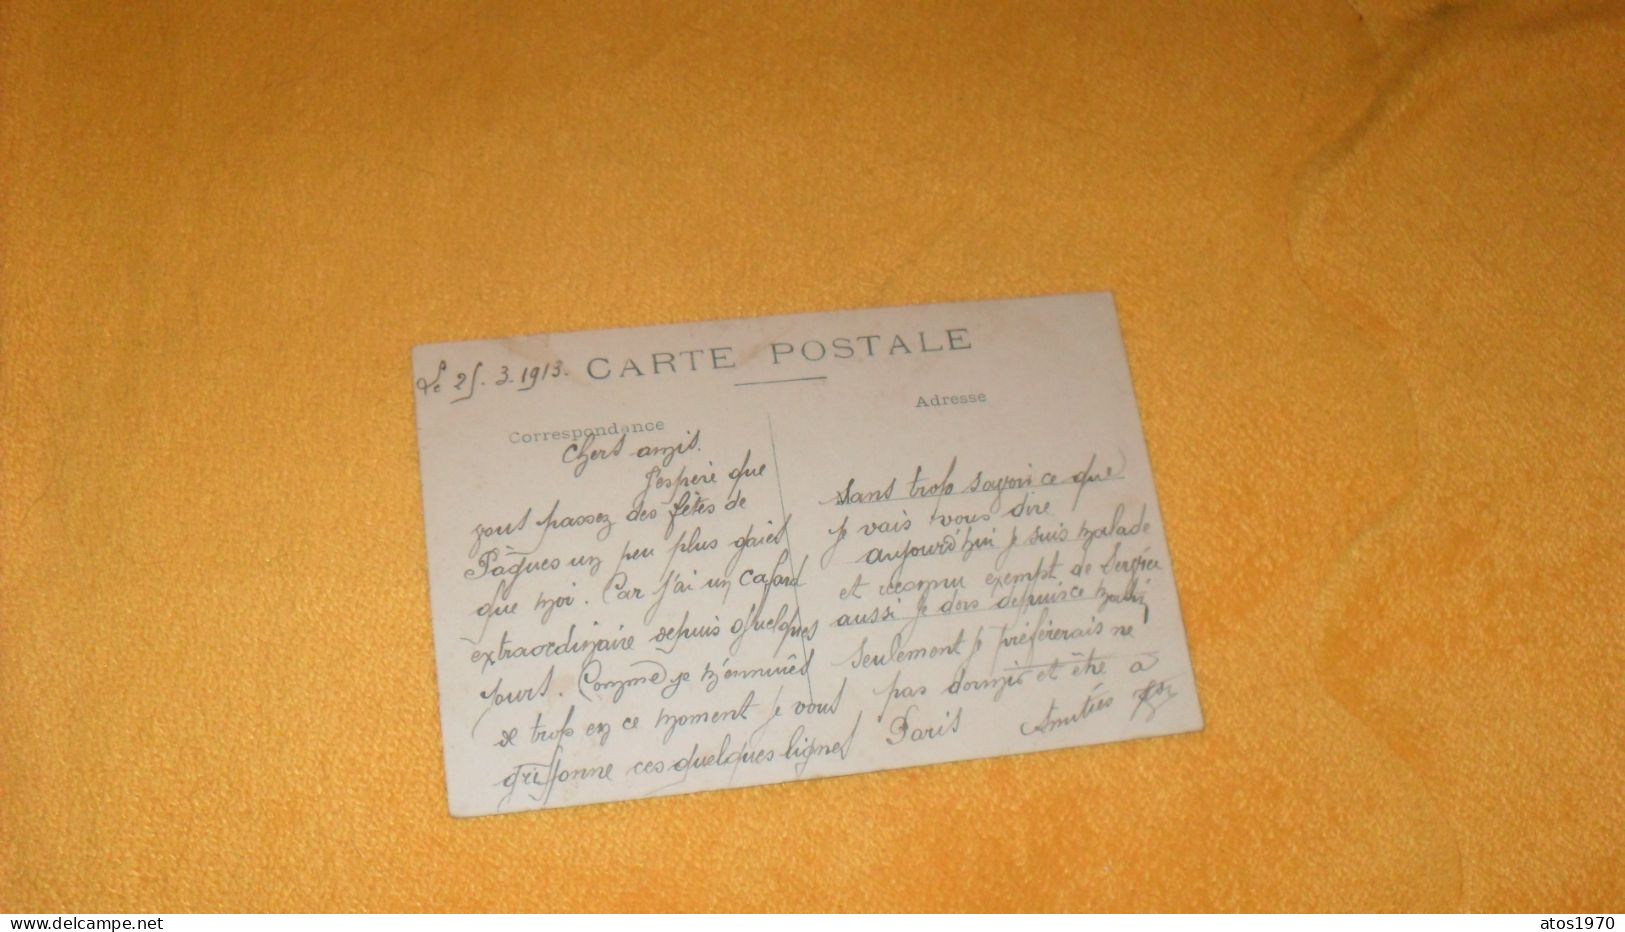 CARTE POSTALE
Le 25.3.1913.
Correspondance
Adresse
Chers amis.
J'espère que
vous passez des fêtes de
Pâques un peu plus gaies
que moi. Car j'ai un cafard
extraordinaire depuis quelques
jours. Comme je m'ennuies
de trop en ce moment je vous
griffonne ces quelques lignes
sans trop savoir ce que
je vais vous dire
aujourd'hui je suis malade
et reconnu exempt de service
aussi je dors depuis ce matin
seulement je préférerais ne
pas dormir et être à
Paris Amitiés
www.delcampe.net
atos1970